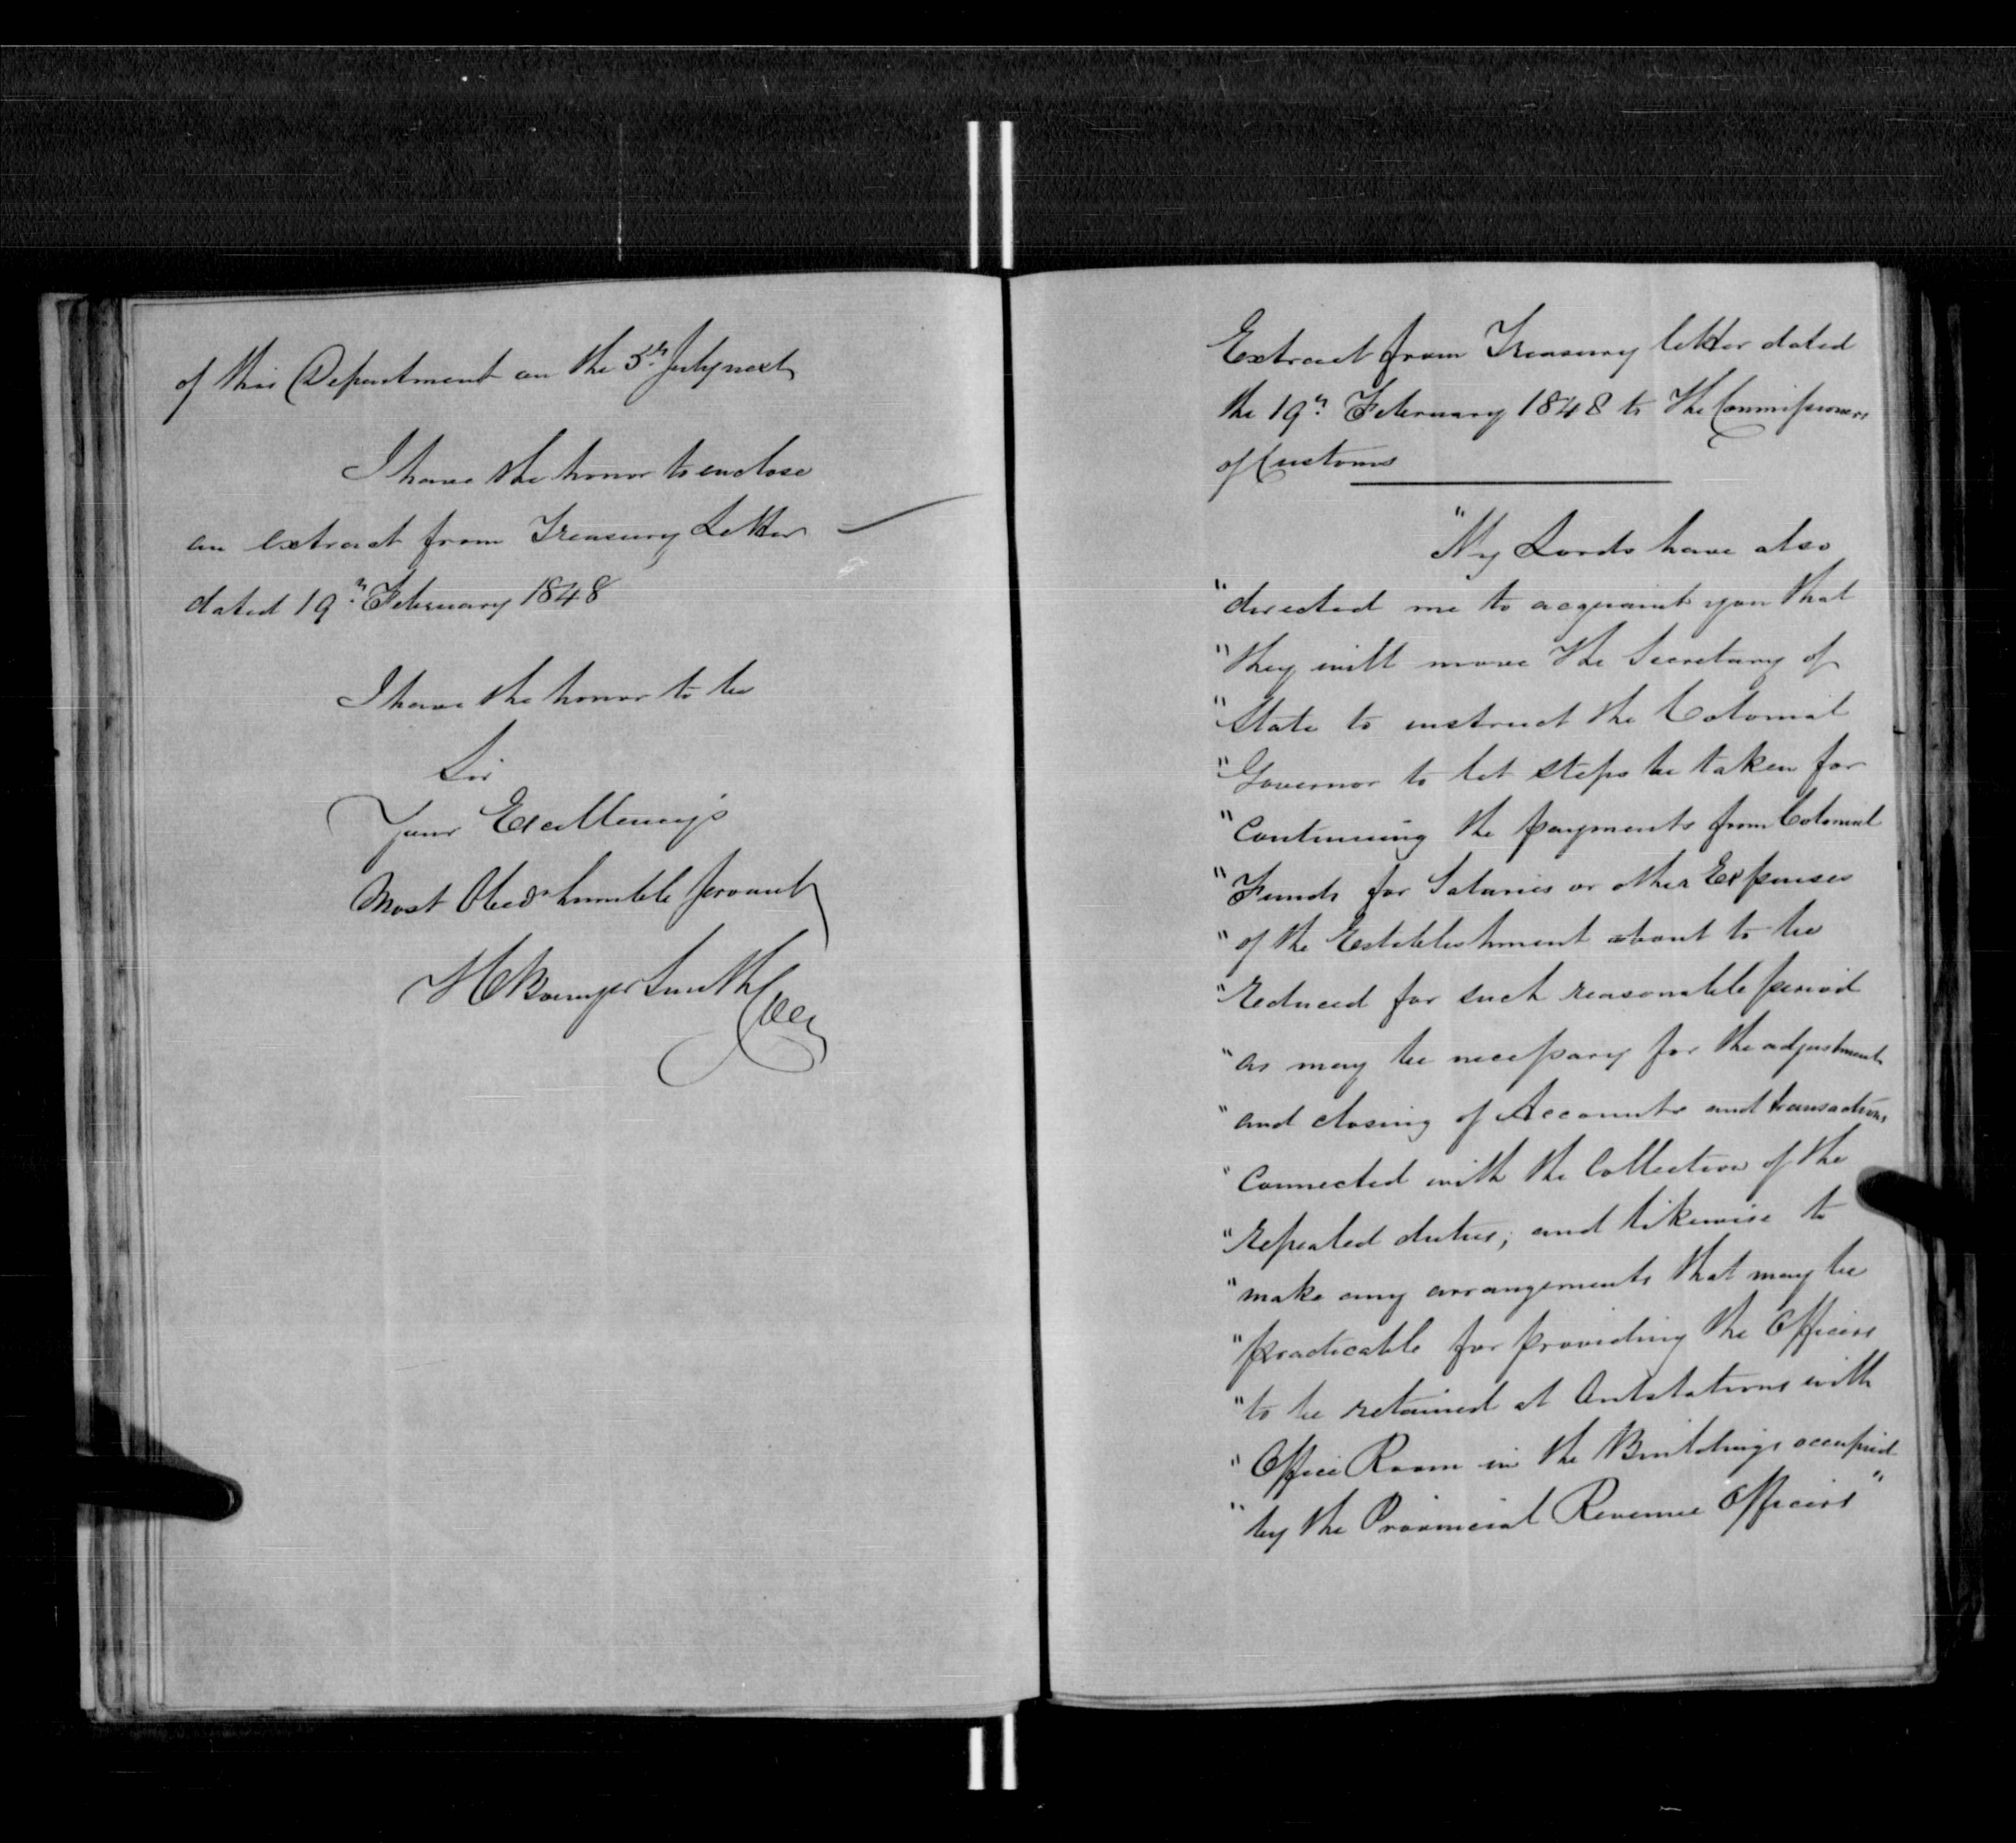 of this Department on the 5th July next
I have the honor to enclose
an extract from Treasury Letter
dated 19th February 1848
I have the honor to be
Sir
Your Excellency's
Most Obedt humble servant
Smith
Extract from Treasury letter dated
the 19th February 1848 to the Commissioners
of Customs
"My Lords have also
"directed me to acquaint you that
"they will move the Secretary of
"State to instruct the Colonial
"Governor to let steps be taken for
"Continuing the payments from Colonial
"Funds for Salaries or other Expenses
"of the Establishment about to be
"reduced for such reasonable period
"as may be necessary for the adjustment
"and closing of Accounts and transactions
"Connected with the Collection of the
"repealed duties; and likewise to
"make any arrangements that may be
"practicable for providing the Officers
"to be retained at Outstations with
"Office Room in the Buildings occupied
"by the Provincial Revenue Officers"